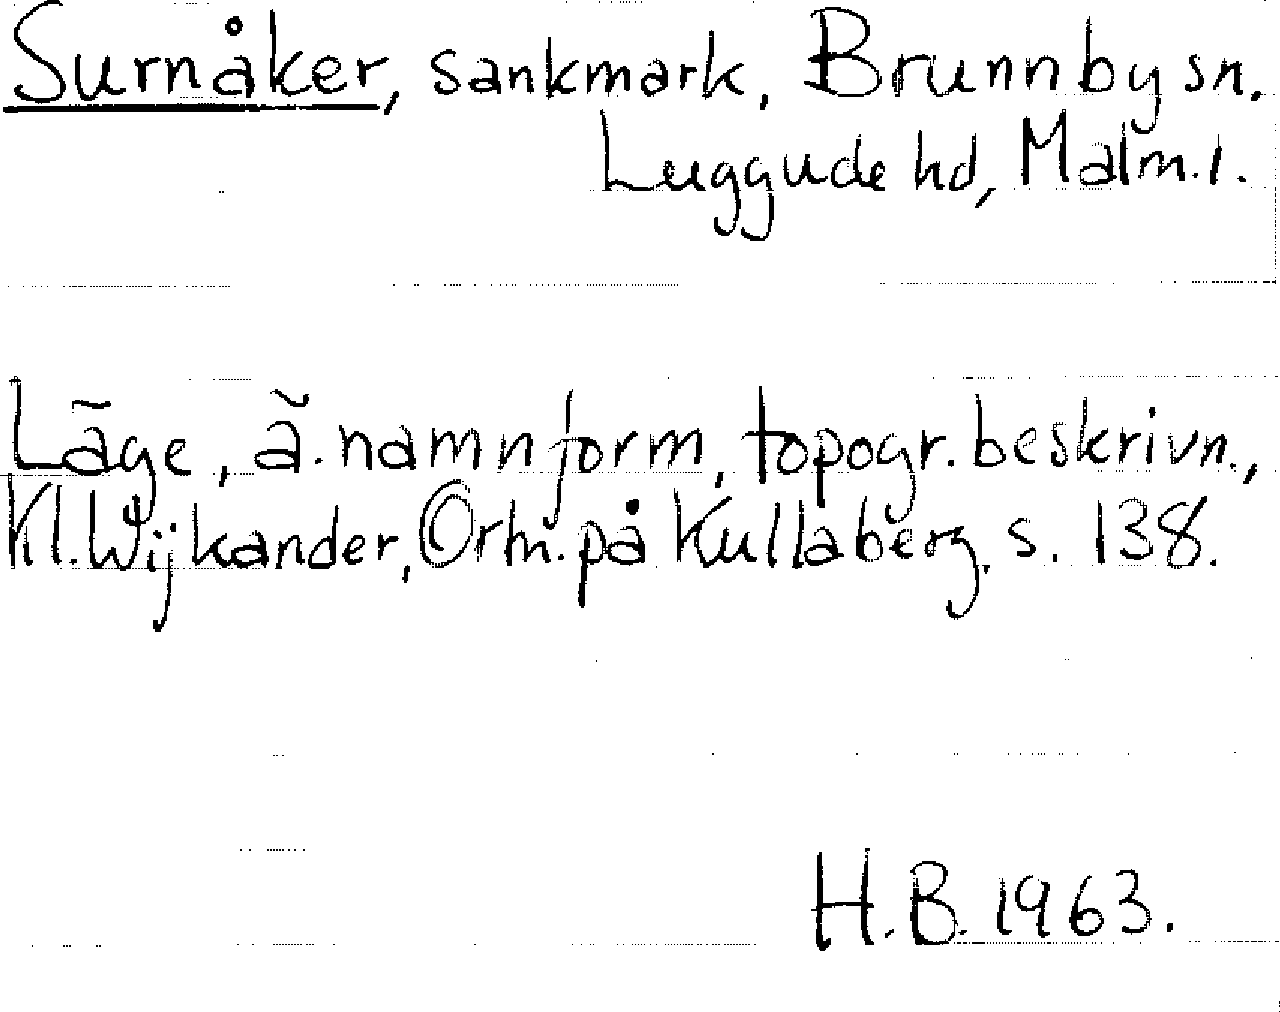 Surnåker, sankmark, Brunnby sn.
Luggude hd, Malm.l.
Läge, ä. namnform, topogr. beskrivn.,
Kl. Wijkander, Ortn. på Kullaberg, s. 138.
H.B. 1963.